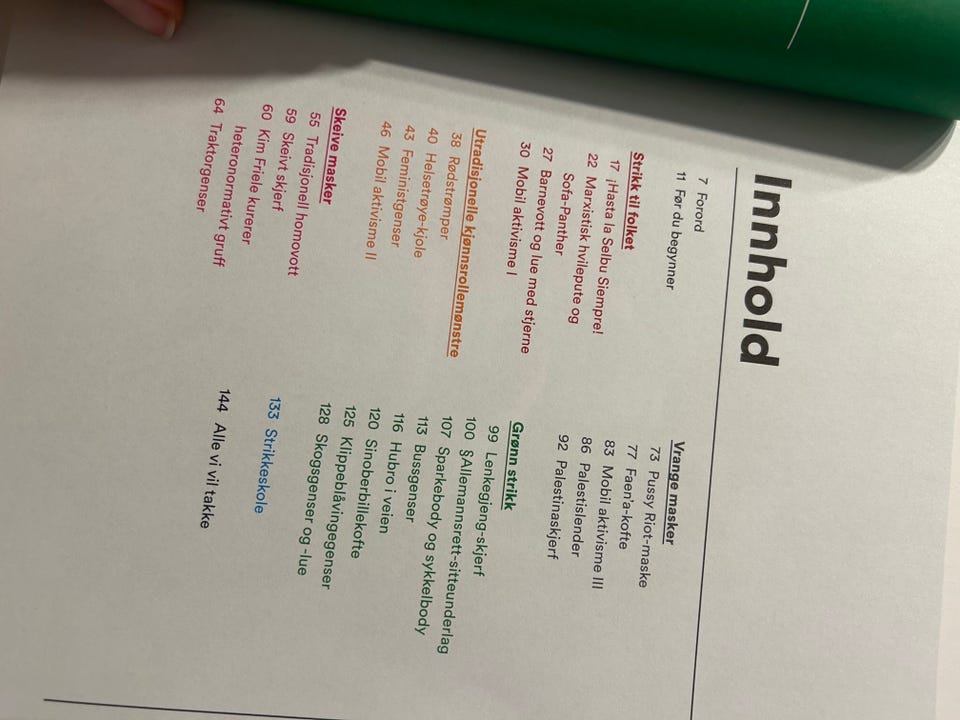 Innhold
7 Forord
11 Før du begynner
Strikk til folket
17 ¡Hasta la Selbu Siempre!
22 Marxistisk hvilepute og
Sofa-Panther
27 Barnevott og lue med stjerne
30 Mobil aktivisme I
Utradisjonelle kjønnsrollemønstre
38 Rødstrømper
40 Helsetrøye-kjole
43 Feministgenser
46 Mobil aktivisme II
Skeive masker
55 Tradisjonell homovott
59 Skeivt skjerf
60 Kim Friele kurerer
heteronormativt gruff
64 Traktorgenser
Vrange masker
73 Pussy Riot-maske
77 Faen'a-kofte
83 Mobil aktivisme III
86 Palestislender
92 Palestinaskjerf
Grønn strikk
99 Lenkegjeng-skjerf
100 §Allemannsrett-sitteunderlag
107 Sparkebody og sykkelbody
113 Bussgenser
116 Hubro i veien
120 Sinoberbillekofte
125 Klippeblåvingegenser
128 Skogsgenser og -lue
133 Strikkeskole
144 Alle vi vil takke